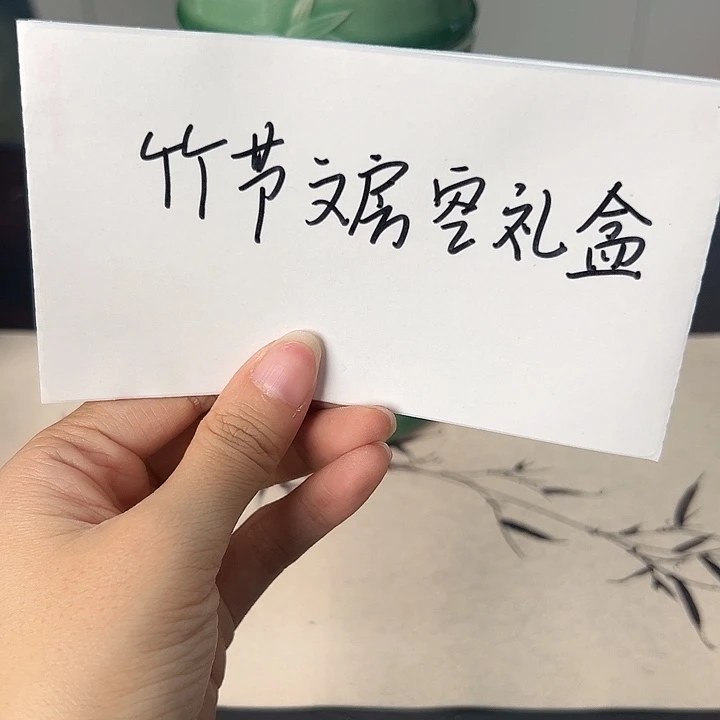 竹节文房空礼盒